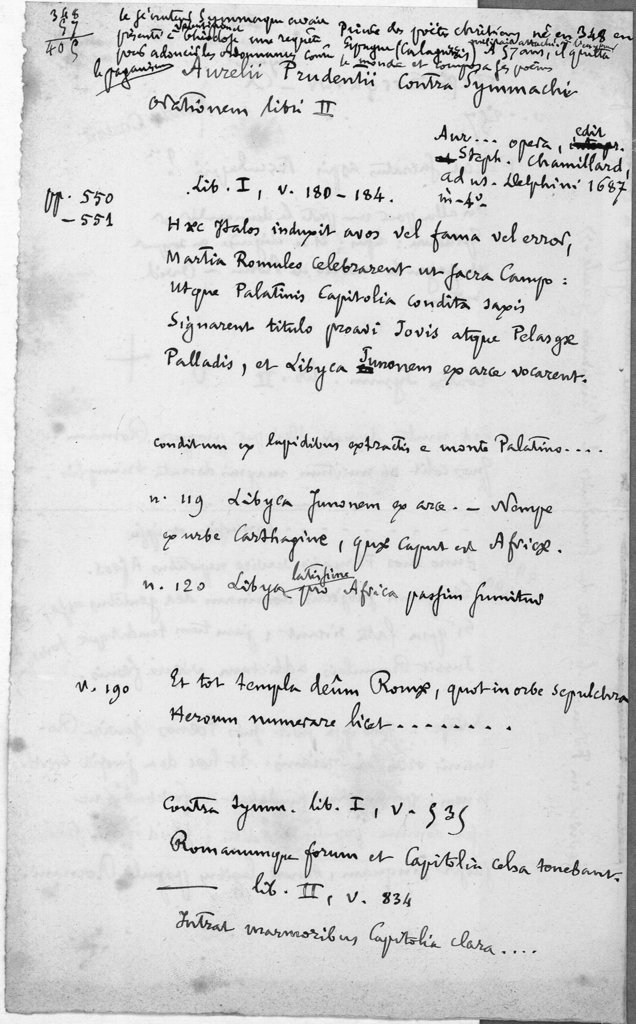 348
57
405
le sénateur Symmaque avait
présenté à Théodose une requête
pour adoucir les ordonnances contre
le paganisme
Prince des poëtes chrétiens né en 348 en
Espagne (Calagurris), A 57 ans, il quitta
le monde et composa ses poëmes
Aurelii Prudentii Contra Symmachi
orationem libri II
Aur... opera, edit
Steph. Chamillard,
ad us. Delphini 1687
in-4º
pp. 550
– 551
Lib. I, v. 180-184.
Hæc Italos induxit avos vel fama vel error,
Martia Romuleo celebrarent ut sacra Campo :
Utque Palatinis Capitolia condita saxis
Signarent titulo proavi Jovis atque Pelasgæ
Palladis, et Libyca Junonem ex arce vocarent.
conditum ex lapidibus extractis e monte Palatino....
n. 119 Libyca Junonem ex arce. – Nempe
ex urbe Carthagine, quæ caput est Africæ.
n. 120 Libya latissime pro Africa passim sumitur
v. 190 Et tot templa deûm Romæ, quot in orbe sepulchra
Heroum numerare licet ........
Contra Symm. lib. I, v. 535
Romanumque forum et Capitolia celsa tonebant.
—— lib. II, v. 834
Intrat marmoribus Capitolia clara ....